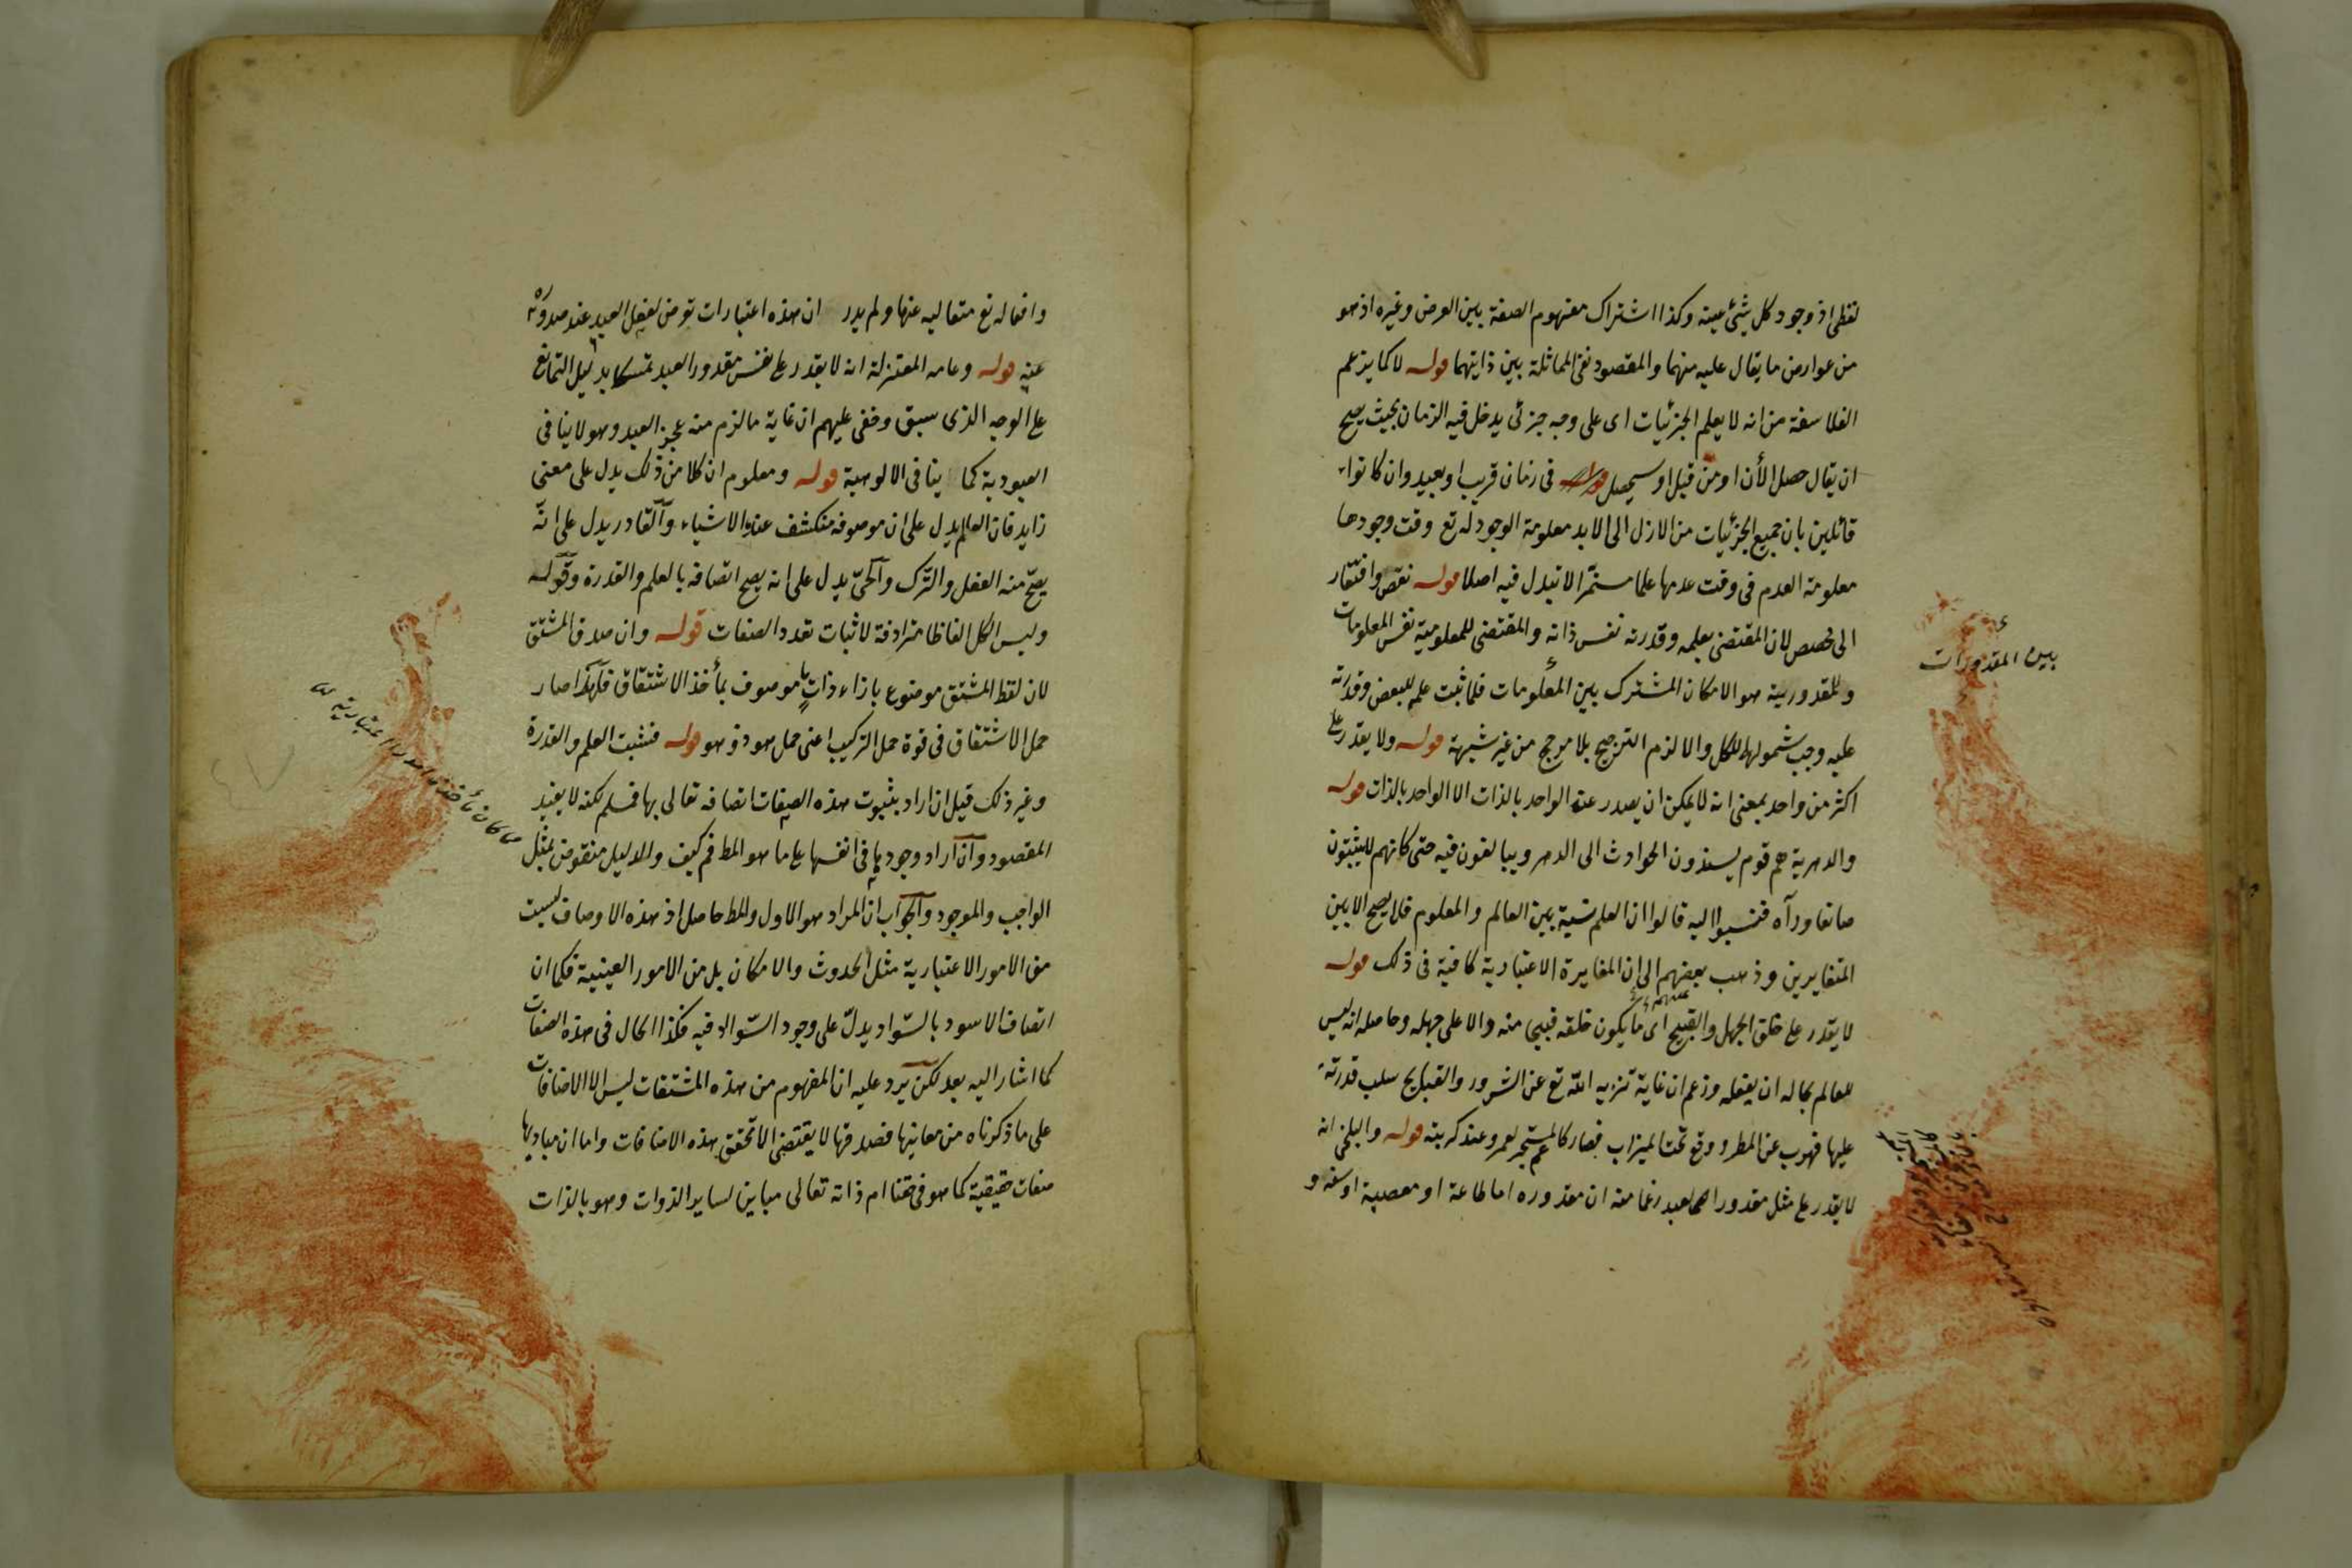 لفظى اذ وجود كل شيئ عينه وكذا اشتراك مفهوم الصفة بين العرض وغيره اذ هو
من عوارض ما يقال عليه منهما والمقصود نفى المماثلة بين ذاتيهما قوله لا كما يزعم
الفلاسفة من انه لا يعلم الجزئيات اى على وجه جزئى يدخل فيه الزمان بحيث يصح
ان يقال حصل الأن او من قبل او سيحصل فى زمان قريب او بعيد وان كانوا
قائلين بان جميع الجزئيات من الازل الى الابد معلومة الوجود له تع وقت وجودها
معلومة العدم فى وقت عدمها علما مستمرّا لا تبدل فيه اصلا قوله نقص وافتقار
الى مخصص لان المقتضى بعلمه وقدرته نفس ذاته والمقتضى للمعلومية نفس المعلومات
وللمقدورية هو الامكان المشترك بين المعلومات فلما ثبت علمه للبعض وقدرته
بين المقدورات
عليه وجب شمولهما للكل والا لزم الترجيح بلا مرجح من غير شبهة قوله ولا يقدر على
اكثر من واحد بمعنى انه لا يمكن ان يصدر عنه الواحد بالذات الا الواحد بالذات قوله
والدهرية هم قوم يسندون الحوادث الى الدهر ويبالغون فيه حتى كانهم لا يثبتون
صانعا ورآه فنسبوا اليه قالوا ان العلم نسبة بين العالم والمعلوم فلا يصح الا بين
المتغايرين وذهب بعضهم الى ان المغايرة الاعتبارية كافية فى ذلك قوله
لا يقدر على خلق الجهل والقبيح اى ما يكون خلقه قبيحا منه والا على جهله وحاصله انه ليس
للعالم بحاله ان يفعله وزعم ان غاية تنزيه الله تع عن الشرور والقبايح سلب قدرته
عليها فهرب عن المطر ووقع تحت الميزاب فصار كالمستجير بعمرو عند كربته قوله والبلخى انه
لا يقدر على مثل مقدور العبد زعما منه ان مقدوره اما طاعة او معصية او سفه و
وافعاله تع متعاليه عنها ولم يدر ان هذه اعتبارات تعرض لفعل العبد عند صدوره
عنه قوله وعامه المعتزلة انه لا يقدر على نفس مقدور العبد تمسكا بدليل التمانع
على الوجه الذى سبق وخفى عليهم ان غاية ما لزم منه عجز العبد وهو لا ينافى
العبودية كما ينافى الالوهية قوله ومعلوم ان كلا من ذلك يدل على معنى
زايد فان العالم يدل على ان موصوفه منكشف عنده الاشياء والقادر يدل على انّه
يصحّ منه الفعل والترك والحىّ يدل على انه يصح اتصافه بالعلم والقدرة وقوله
وليس الكل الفاظا مترادفة لاثبات تعدد الصفات قوله وان صدق المشتق
لان لفظ المشتق موضوع بازاء ذات ما موصوف بمأخذ الاشتقاق فلهذا صار
حمل الاشتقاق فى قوة حمل التركيب اعنى حمل هو ذو هو قوله فثبت العلم والقدرة
ما كان مأخذه امرا اعتباريه
وغير ذلك قيل ان اراد بثبوت هذه الصفات اتصافه تعالى بها فمسلم لكنه لا يفيد
المقصود وان اراد وجودها فى انفسها على ما هو المط فم كيف والدليل منقوض بمثل
الواجب والموجود والجواب ان المراد هو الاول والمط حاصل اذ هذه الاوصاف ليست
من الامور الاعتبارية مثل الحدوث والامكان بل من الامور العينية فكما ان
اتصاف الاسود بالسّواد يدلّ على وجود السّواد فيه فكذا الحال فى هذه الصفات
كما اشار اليه بعد لكن يرد عليه ان المفهوم من هذه المشتقات ليس الا الاضافات
على ما ذكرناه من معانيها فصدقها لا يقتضى الا تحقق هذه الاضافات واما ان مباديها
صفات حقيقية كما هو فى حقنا ام ذاته تعالى مباين لساير الذوات وهو بالذات